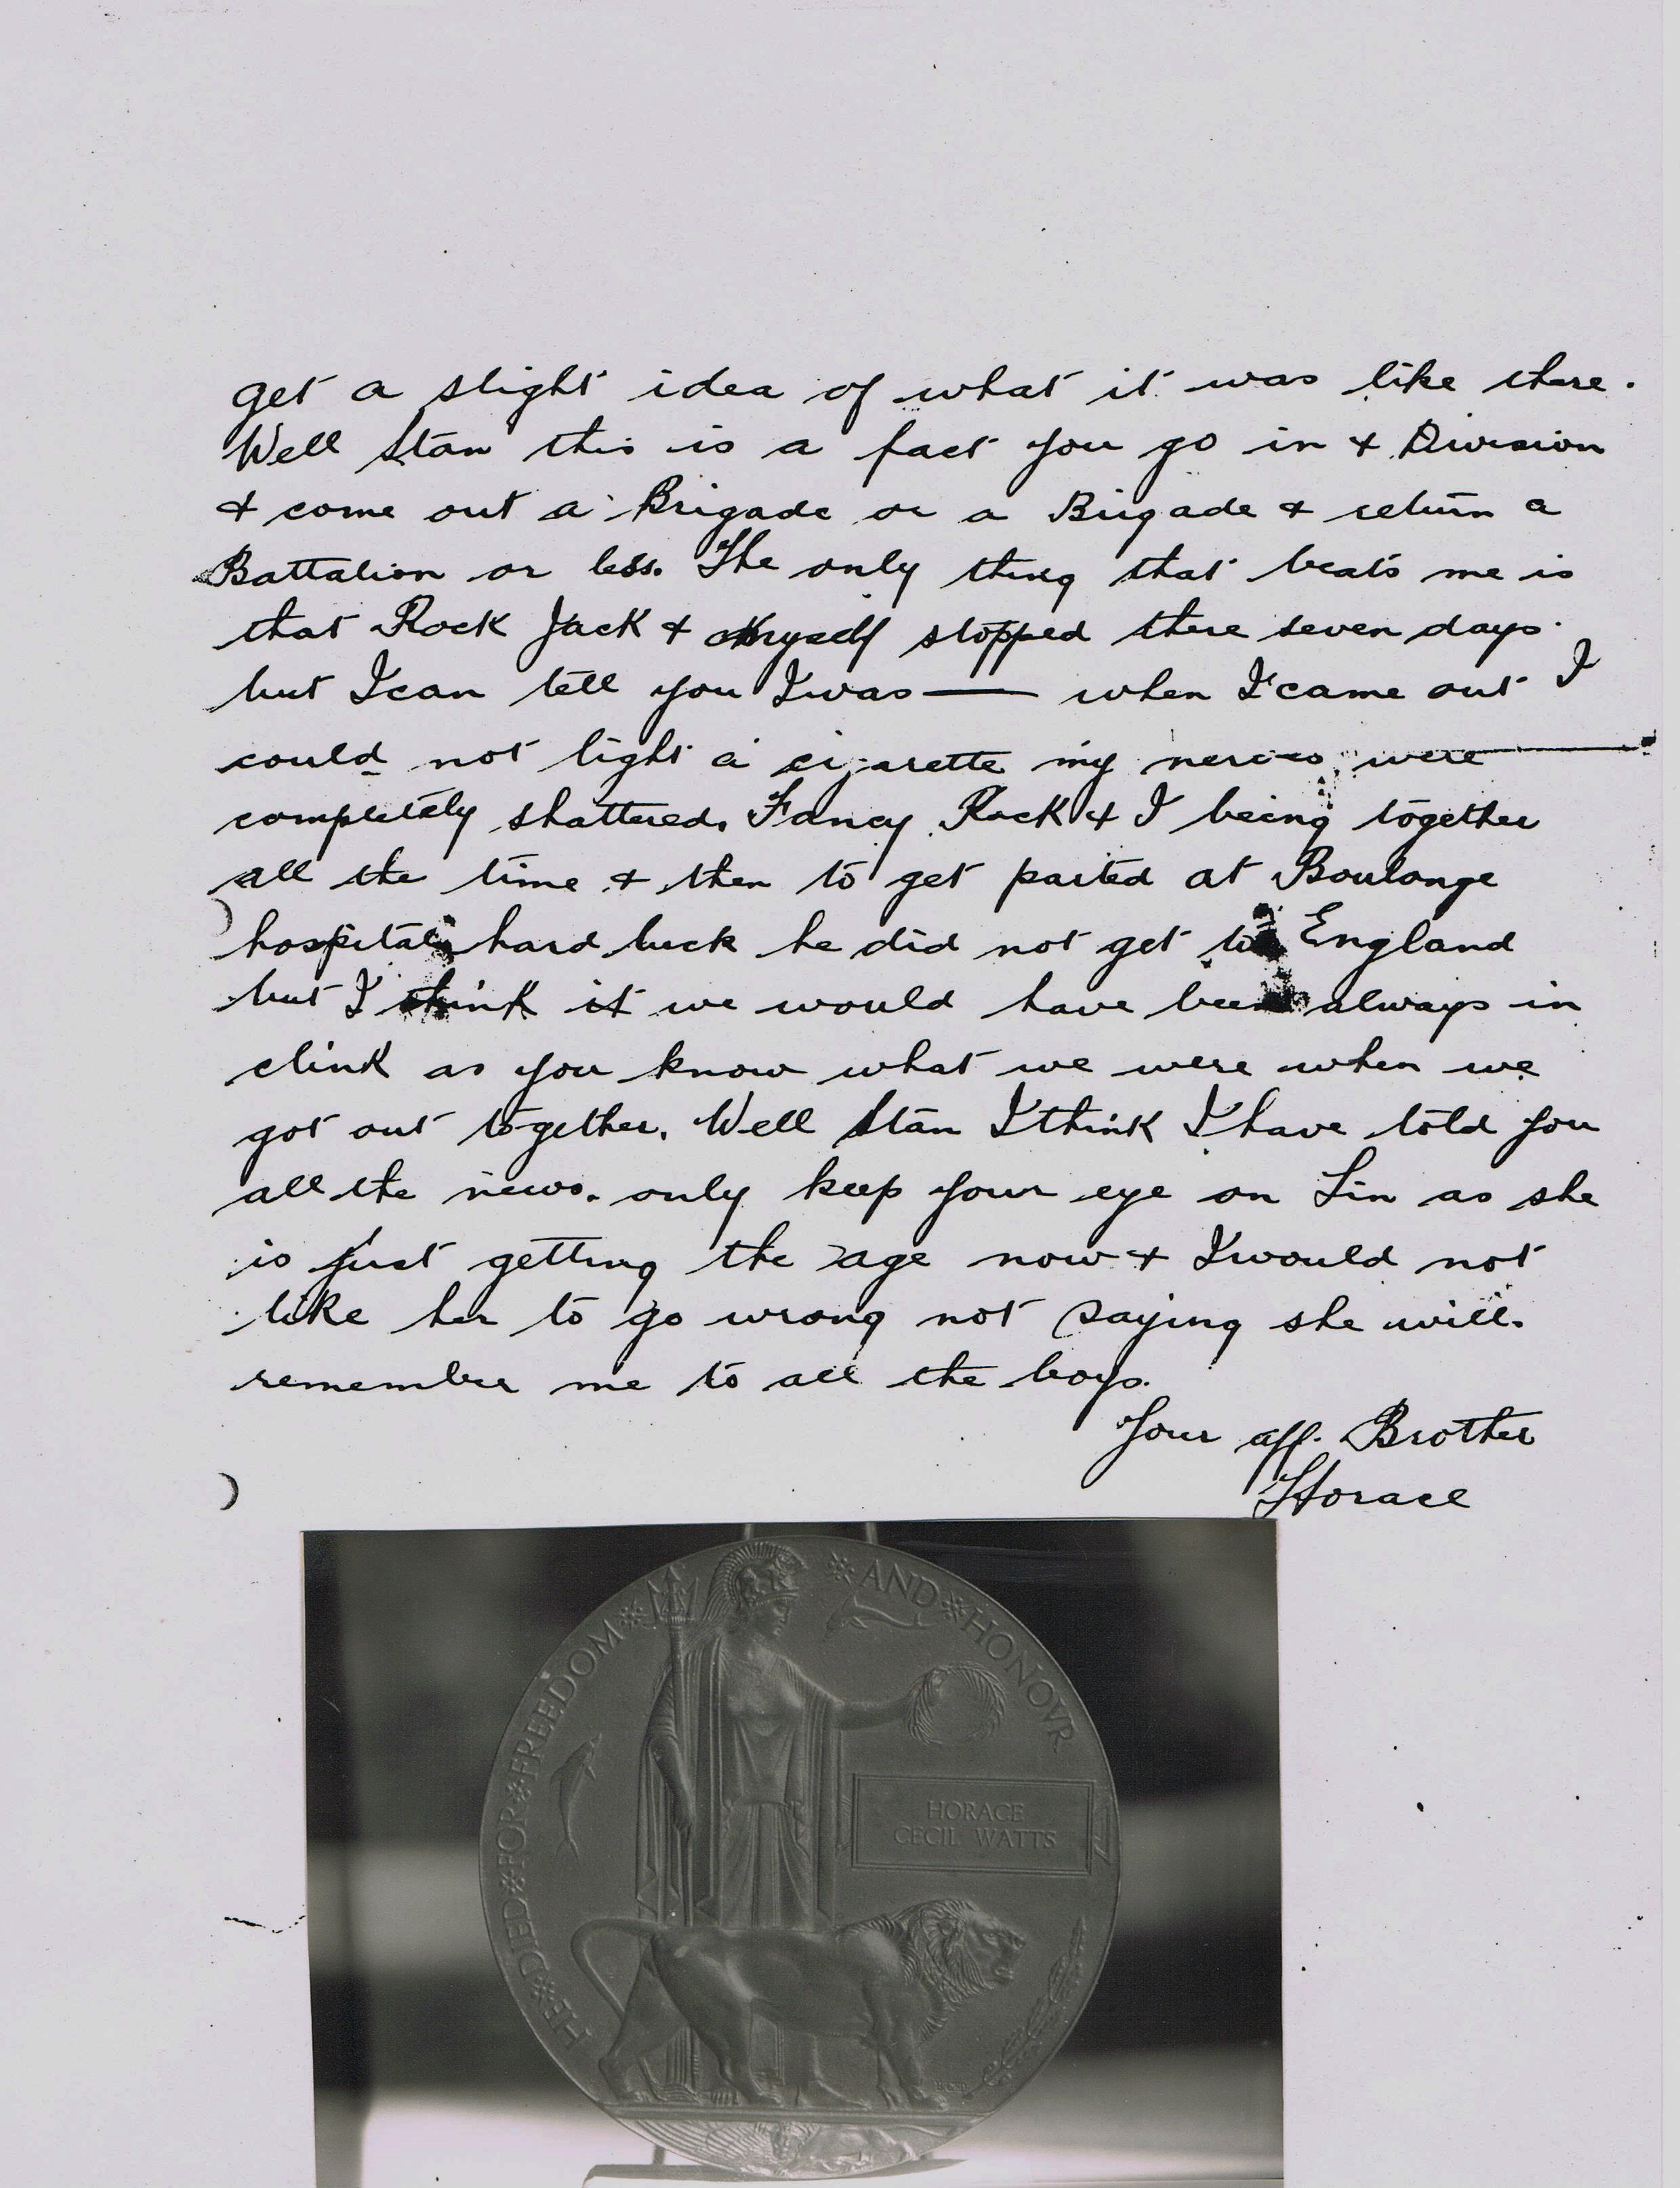 get a slight idea of what it was like there.
Well Stan this is a fact you go in & Division
& come out a Brigade or a Brigade & return a
Battalion or less. The only thing that beats me is
that Rock Jack & Myself stopped there seven days.
but I can tell you I was — when I came out I
could not light a cigarette my nerves were —
completely shattered. Fancy Rock & I being together
all the time & then to get parted at Boulonge
hospital hard luck he did not get to England
but I think it we would have been always in
clink as you know what we were when we
got out together. Well Stan I think I have told you
all the news. only keep your eye on Lin as she
is just getting the age now & I would not
like her to go wrong not saying she will.
remember me to all the boys.
Your aff. Brother
Horace
HE DIED FOR FREEDOM AND HONOVR
HORACE
CECIL WATTS